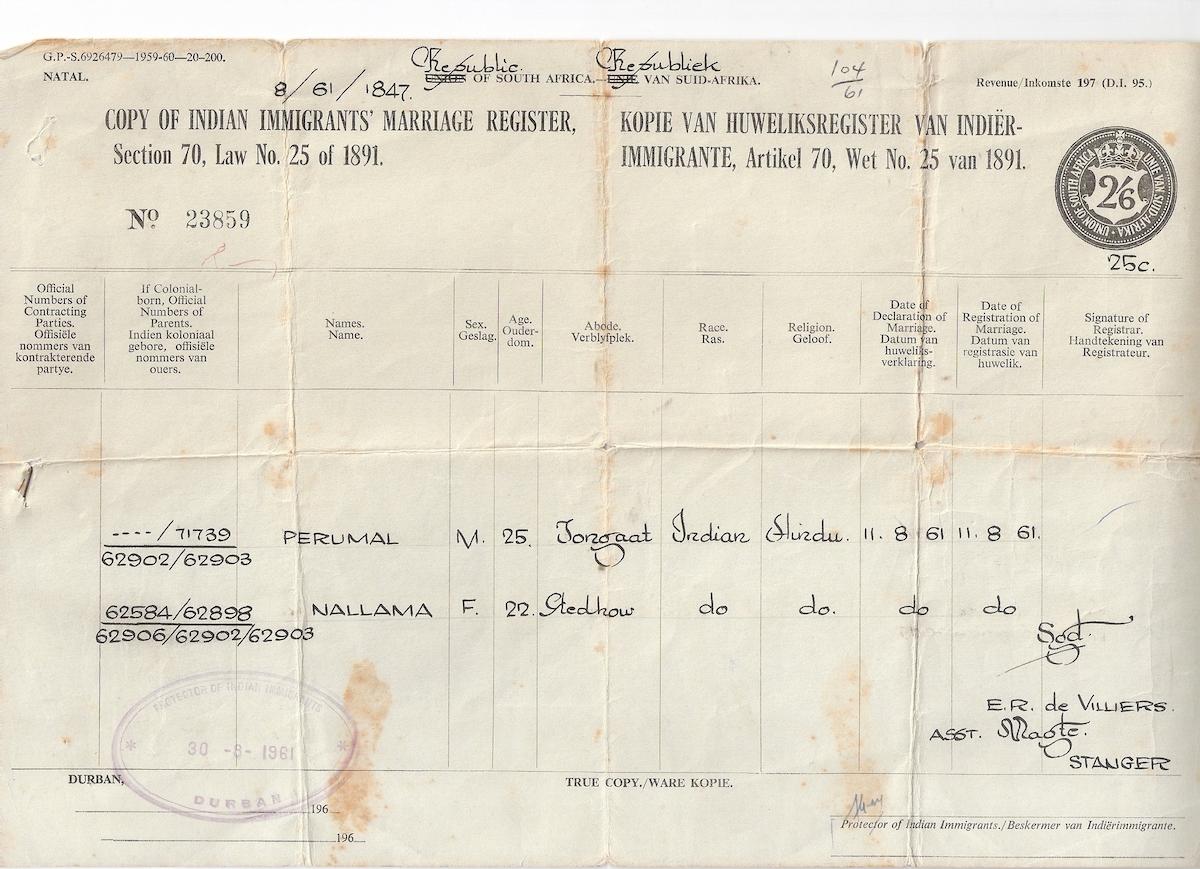 G.P.-S.6926479—1959-60—20-200.
NATAL.
Republic Republiek
UNION OF SOUTH AFRICA.—UNIE VAN SUID-AFRIKA.
104
61
Revenue/Inkomste 197 (D.I. 95.)
8/61/1847.
COPY OF INDIAN IMMIGRANTS' MARRIAGE REGISTER,
Section 70, Law No. 25 of 1891.
KOPIE VAN HUWELIKSREGISTER VAN INDIËR-
IMMIGRANTE, Artikel 70, Wet No. 25 van 1891.
UNION OF SOUTH AFRICA UNIE VAN SUID-AFRIKA
2/6
25c.
No 23859
Official
Numbers of
Contracting
Parties.
Offisiële
nommers van
kontrakterende
partye.
If Colonial-
born, Official
Numbers of
Parents.
Indien koloniaal
gebore, offisiële
nommers van
ouers.
Names.
Name.
Sex.
Geslag.
Age.
Ouder-
dom.
Abode.
Verblyfplek.
Race.
Ras.
Religion.
Geloof.
Date of
Declaration of
Marriage.
Datum van
huweliks-
verklaring.
Date of
Registration of
Marriage.
Datum van
registrasie van
huwelik.
Signature of
Registrar.
Handtekening van
Registrateur.
----/71739 PERUMAL M. 25. Tongaat Indian Hindu. 11. 8 61 11. 8 61.
62902/62903
62584/62898 NALLAMA F. 22. Gledhow do do. do do
62906/62902/62903
Sgd.
E.R. de VILLIERS.
ASST. Magte.
STANGER
PROTECTOR OF INDIAN IMMIGRANTS
30 -8- 1961
DURBAN
DURBAN,
196
196
TRUE COPY./WARE KOPIE.
Protector of Indian Immigrants./Beskermer van Indiërimmigrante.